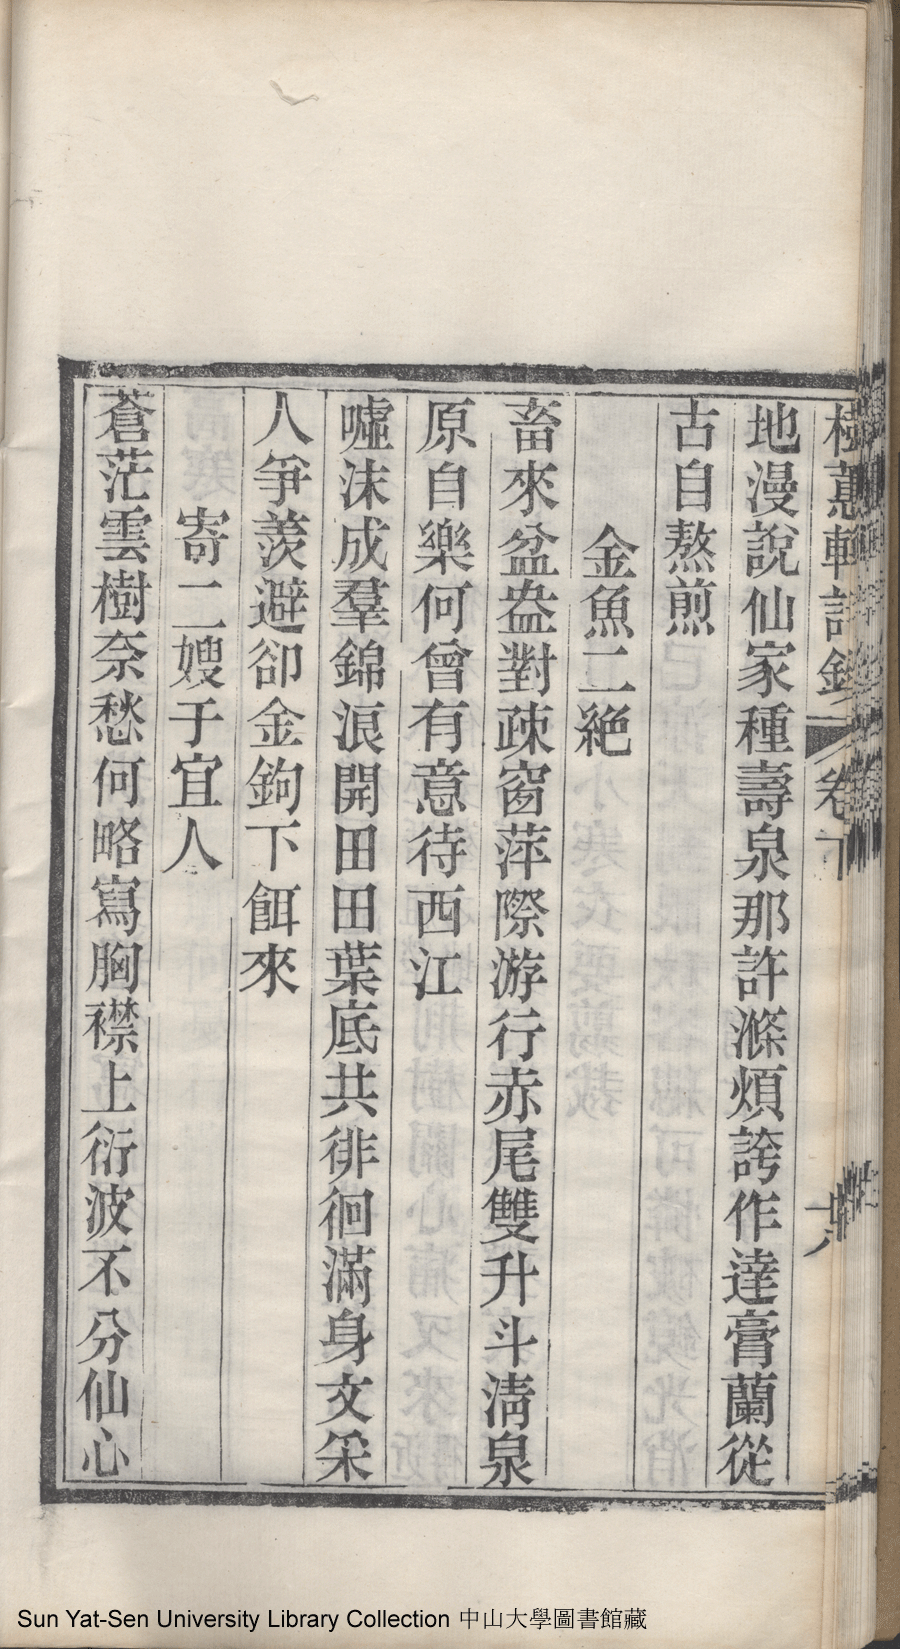 樹蕙軒詩鈔 卷下
地漫說仙家種壽泉那許滌煩誇作達膏蘭從
古自熬煎
金魚二絶
畜來盆盎對疎窗萍際游行赤尾雙升斗淸泉
原自樂何曾有意待西江
噓沫成羣錦浪開田田葉底共徘徊滿身文采
人爭羨避卻金鉤下餌來
寄二嫂于宜人
蒼茫雲樹奈愁何略寫胸襟上衍波不分仙心
Sun Yat-Sen University Library Collection 中山大學圖書館藏